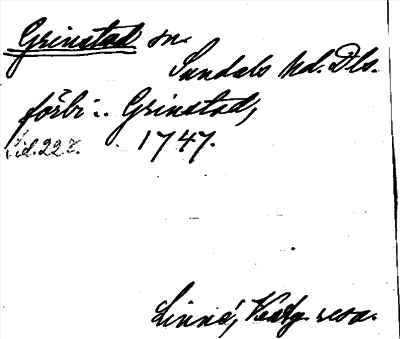 Grinstad sn.
Sundals hd. Dls.
förbi :. Grinstad,
Sid. 227. 1747.
Linné, Västg. resa.